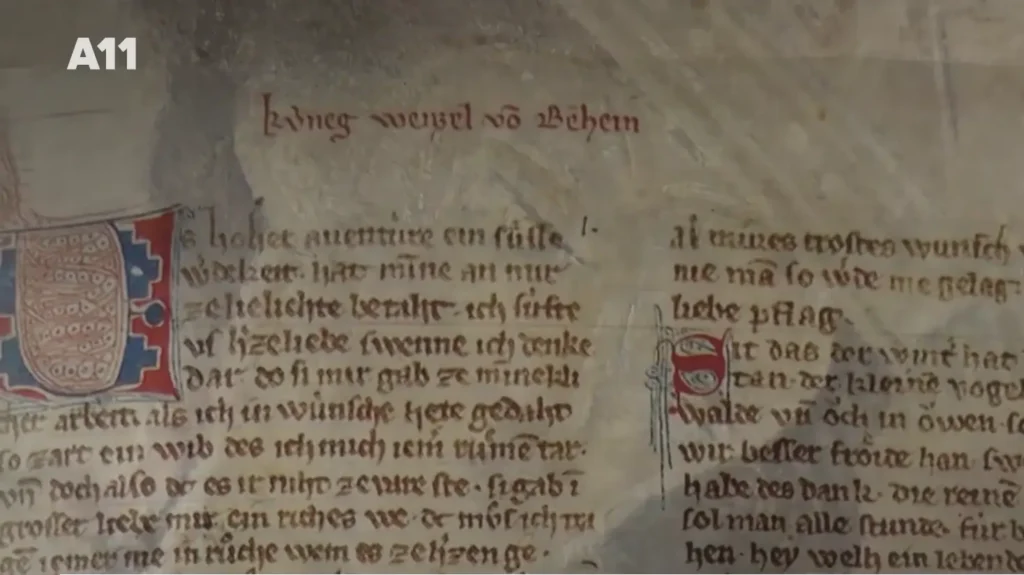 A11
kv́neg wenzel vō Behein
s hoher auentúre ein sússe
w̓dekeit· hat mīne an mir
ze liehte braht· ich súfte
vs h̓zeliebe swenne ich denke
dar· do si mir gab ze mīnekli
cher arbeit. als ich in wúnsche hete gedaht
so zart ein wib des ich mich iem̄ rúmē tar·
vn̄ doch also dc es ir niht ze vare ste· si gab ī
grosser liebe mir ein riches we· dc mvͦs ich tra
gē iemer me in rúche wem es ze h̓zen ge·
al mines trostes wunsch
nie mā so w̓de me gelag·
liebe pflag·
Sit das der wint̓ hat
tan· der kleinē vogel
walde vn̄ ȯch in ȯwen· so
wir besser frȯide han· sw
habe des dank· die reinē
sol man alle stunde· fúr b
hen· hey welh ein lebende